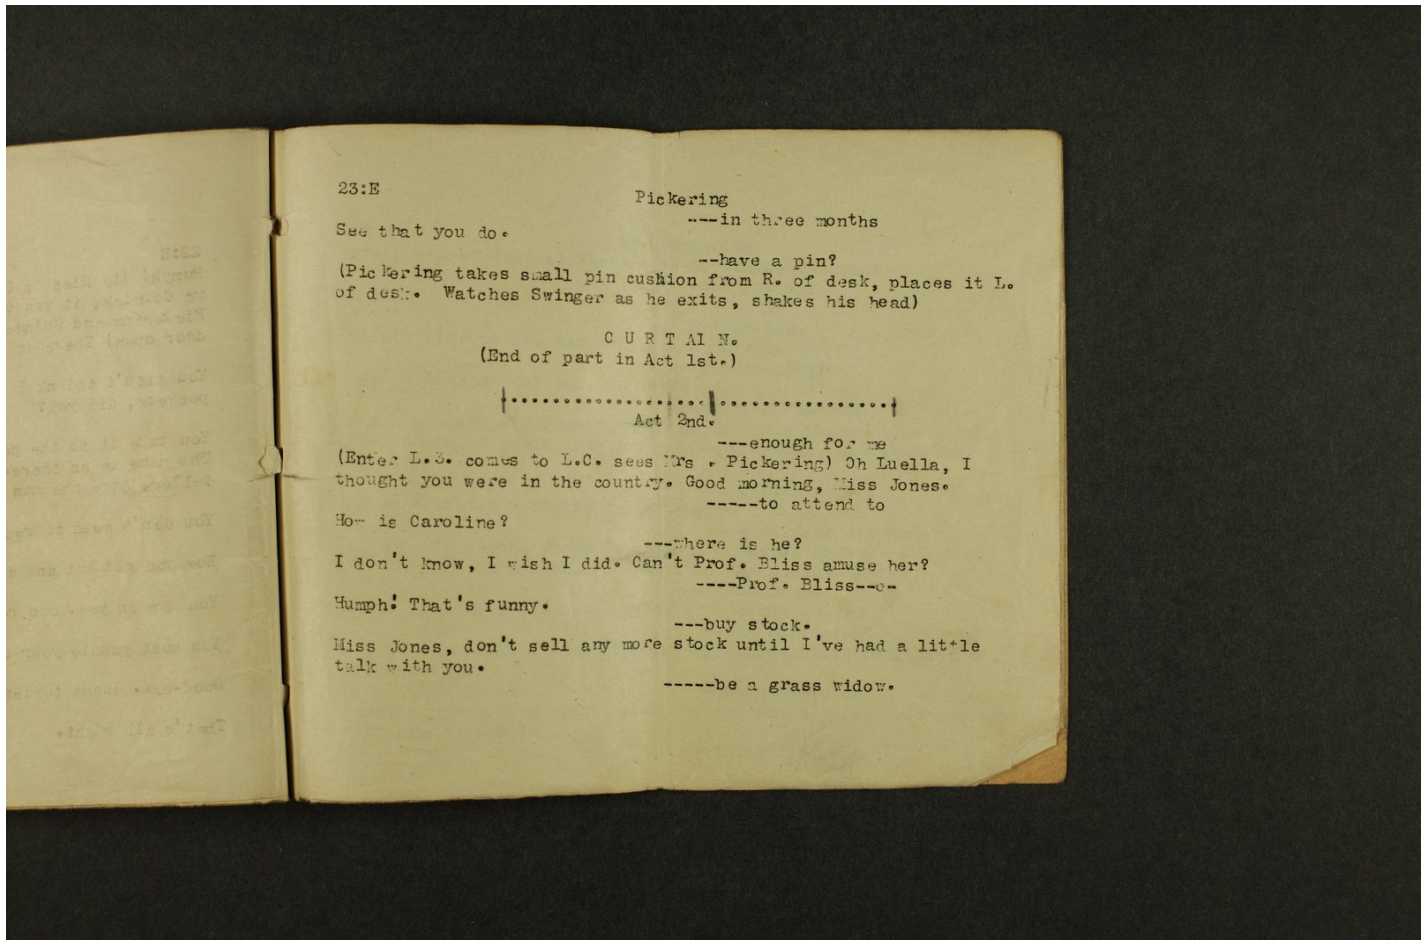 23:E
Pickering
---in three months
See that you do.
--have a pin?
(Pickering takes small pin cushion from R. of desk, places it L.
of desk. Watches Swinger as he exits, shakes his head)
C U R T AI N.
(End of part in Act 1st.)
Act 2nd.
---enough for me
(Enter L.3. comes to L.C. sees Mrs . Pickering) Oh Luella, I
thought you were in the country. Good morning, Miss Jones.
-----to attend to
How is Caroline?
---where is he?
I don't know, I wish I did. Can't Prof. Bliss amuse her?
----Prof. Bliss--
Humph! That's funny.
---buy stock.
Miss Jones, don't sell any more stock until I've had a little
talk with you.
-----be a grass widow.